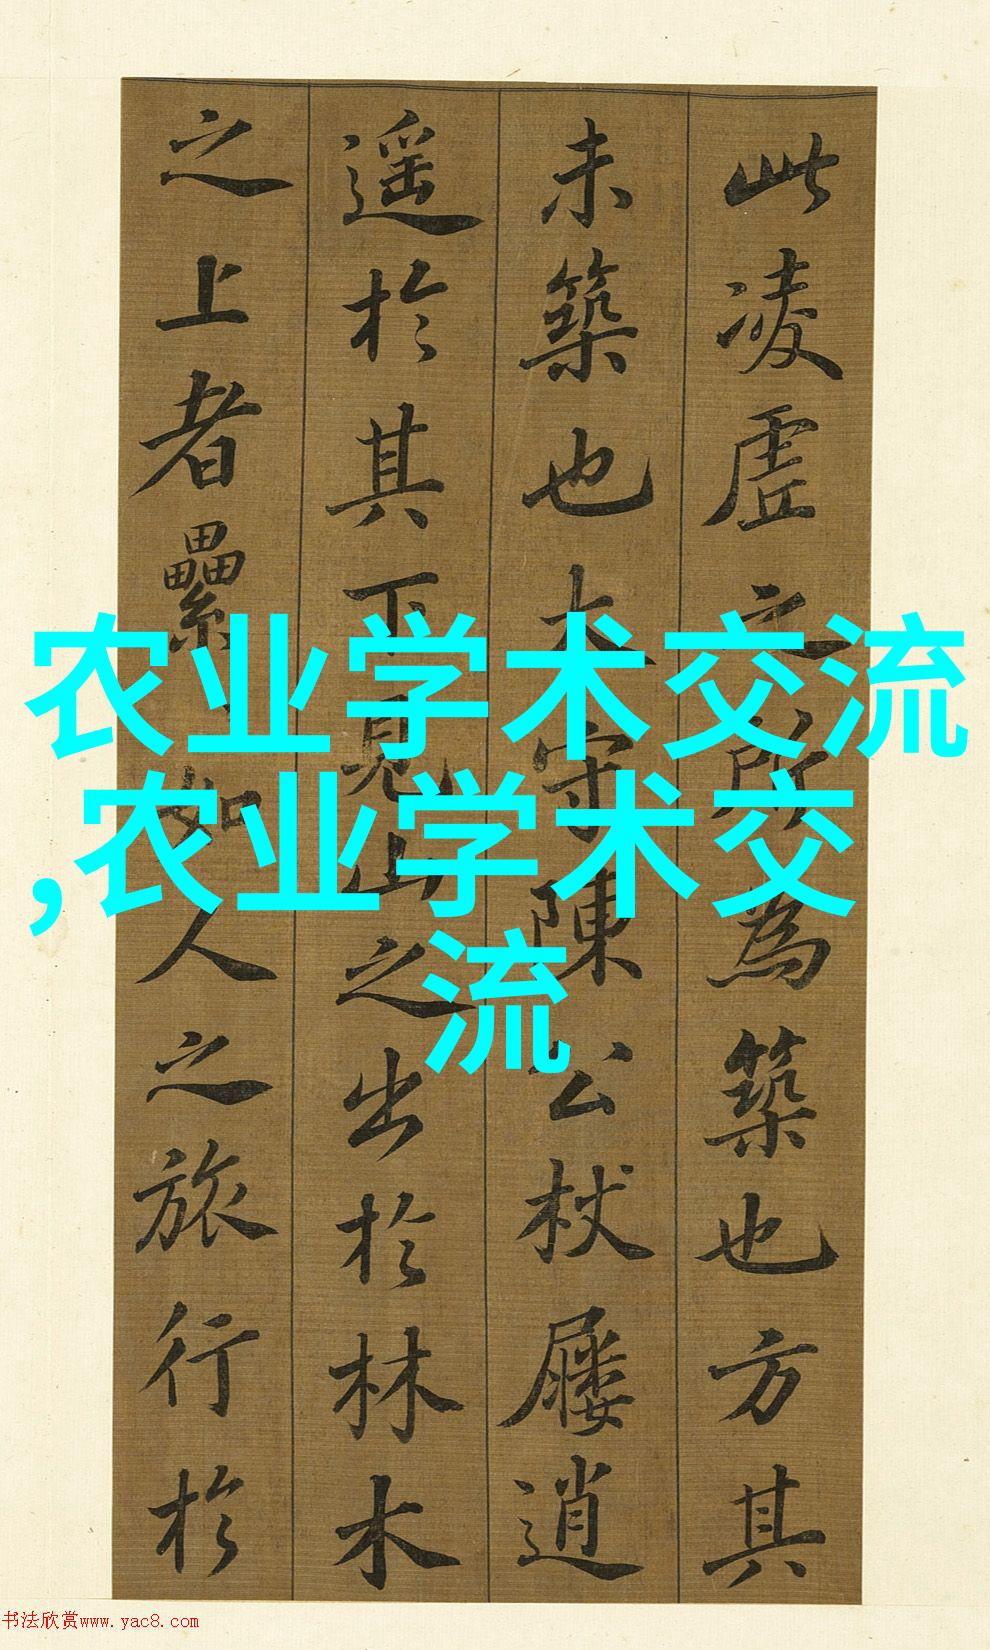 此凌虗之所為築也方其
未築也太守陳公杖屨逍
遥於其下見山之出於林木
之上者纍纍如人之旅行於
农业学术交流
,农业学术交
流
书法欣赏www.yac8.com